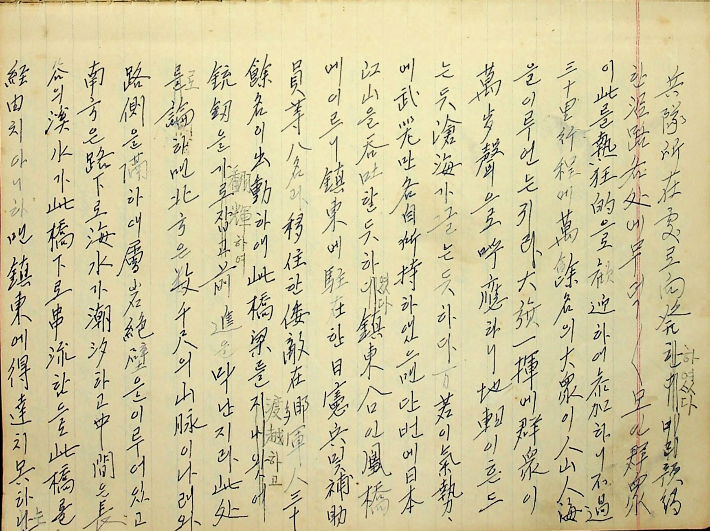 兵隊所在處로向發한卽
한沿路各处에무덕〱모인群衆
이此를熱狂的으로歡迎하여參加하니不過
三十里行程에萬餘名의大衆이人山人海
을이루엇는지라大發一揮에群衆이
萬步聲으로呼應하니地軸이흔드
는듯滄海가끌는듯하다 若이氣勢
에武器만各自所持하엿으맨단번에日本
江山을呑吐할듯하엿다鎭東合口인鳳橋
에이르니鎭東에駐在한日憲兵및補助
員等八名과移住한倭敵在鄕軍人三十
餘名이出動하여此橋梁을渡越하고
銃釼을가로잡고翻輝하여前進을막난지라此处
를論하맨北方은数千尺의山脈이나려와
路側을隔하여層岩絶壁을이루어잇고
南方은路下로海水가潮汐하고中間은長
谷의溪水가此橋下로串流함으로此橋을
経由치아니하맨鎭東에得達치못하나